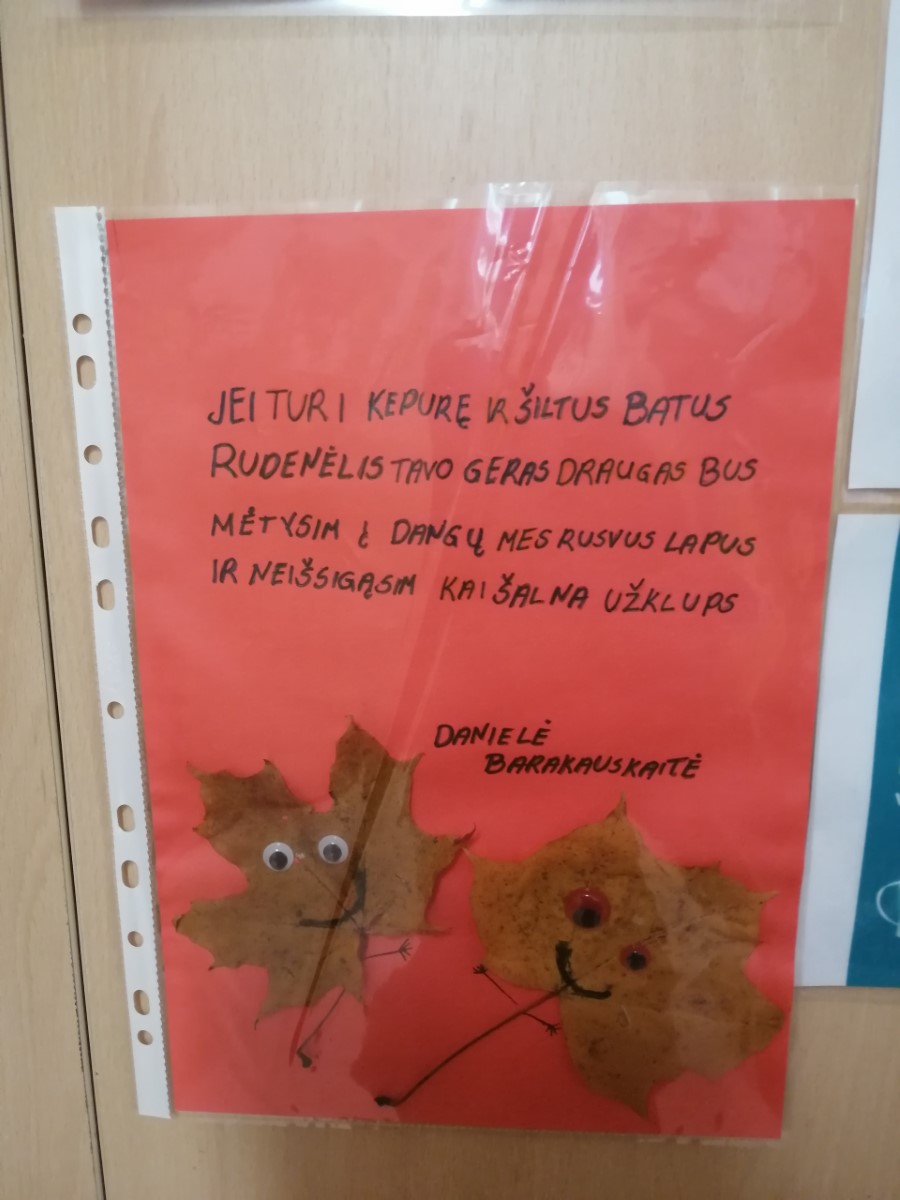 JEI TURI KEPURĘ IR ŠILTUS BATUS
RUDENĖLIS TAVO GERAS DRAUGAS BUS
MĖTYSIM Į DANGŲ MES RUSVUS LAPUS
IR NEIŠSIGĄSIM KAI ŠALNA UŽKLUPS
DANIELĖ
BARAKAUSKAITĖ